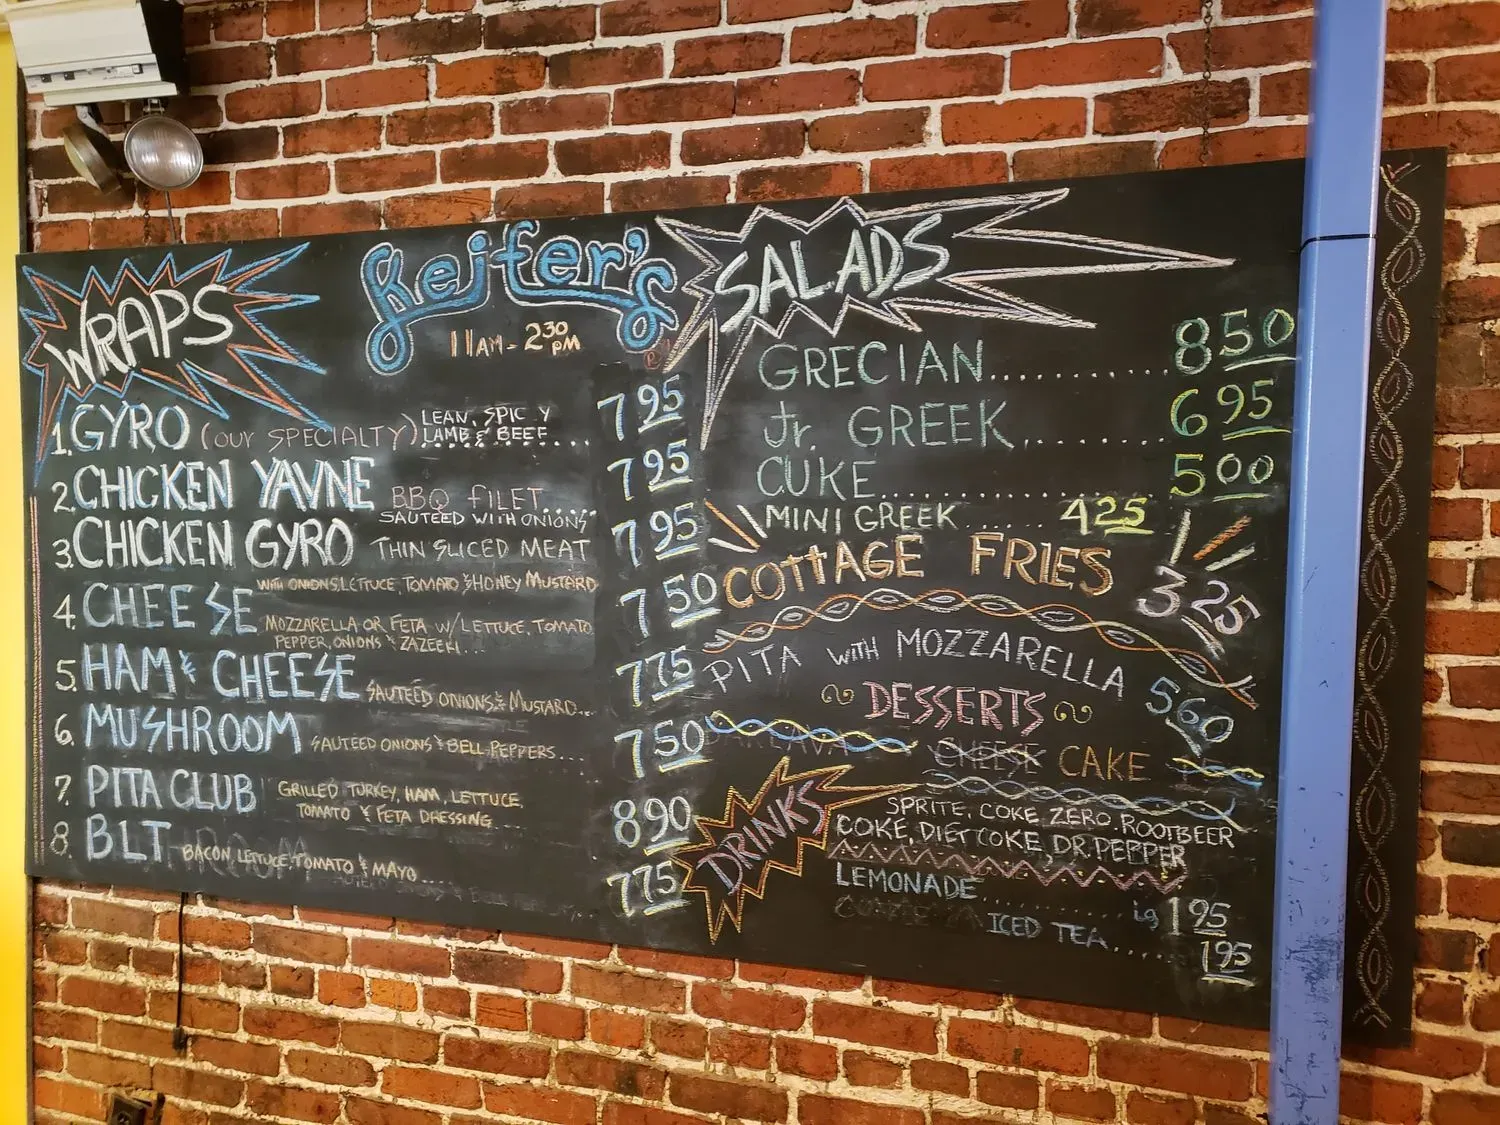 WRAPS
Keifer's
11AM - 2:30 PM
1. GYRO (OUR SPECIALTY) LEAN, SPICY LAMB & BEEF... 7.95
2. CHICKEN YAVNE BBQ FILET..... SAUTEED WITH ONIONS 7.95
3. CHICKEN GYRO THIN SLICED MEAT 7.95
WITH ONIONS, LETTUCE, TOMATO & HONEY MUSTARD
4. CHEESE MOZZARELLA OR FETA W/LETTUCE, TOMATO 7.50
PEPPER, ONIONS & ZAZEEKI...
5. HAM & CHEESE SAUTEED ONIONS & MUSTARD... 7.75
6. MUSHROOM SAUTEED ONIONS & BELL-PEPPERS.... 7.50
7. PITA CLUB GRILLED TURKEY, HAM, LETTUCE, 8.90
TOMATO & FETA DRESSING...
8. BLT BACON, LETTUCE, TOMATO & MAYO.... 7.75
SALADS
GRECIAN............ 8.50
Jr. GREEK......... 6.95
CUKE................. 5.00
MINI GREEK..... 4.25
COTTAGE FRIES 3.25
PITA WITH MOZZARELLA 5.60
DESSERTS
CHEESE CAKE
DRINKS
SPRITE, COKE ZERO, ROOTBEER
COKE, DIET COKE, DR. PEPPER
LEMONADE............ lg 1.95
ICED TEA.... 1.95